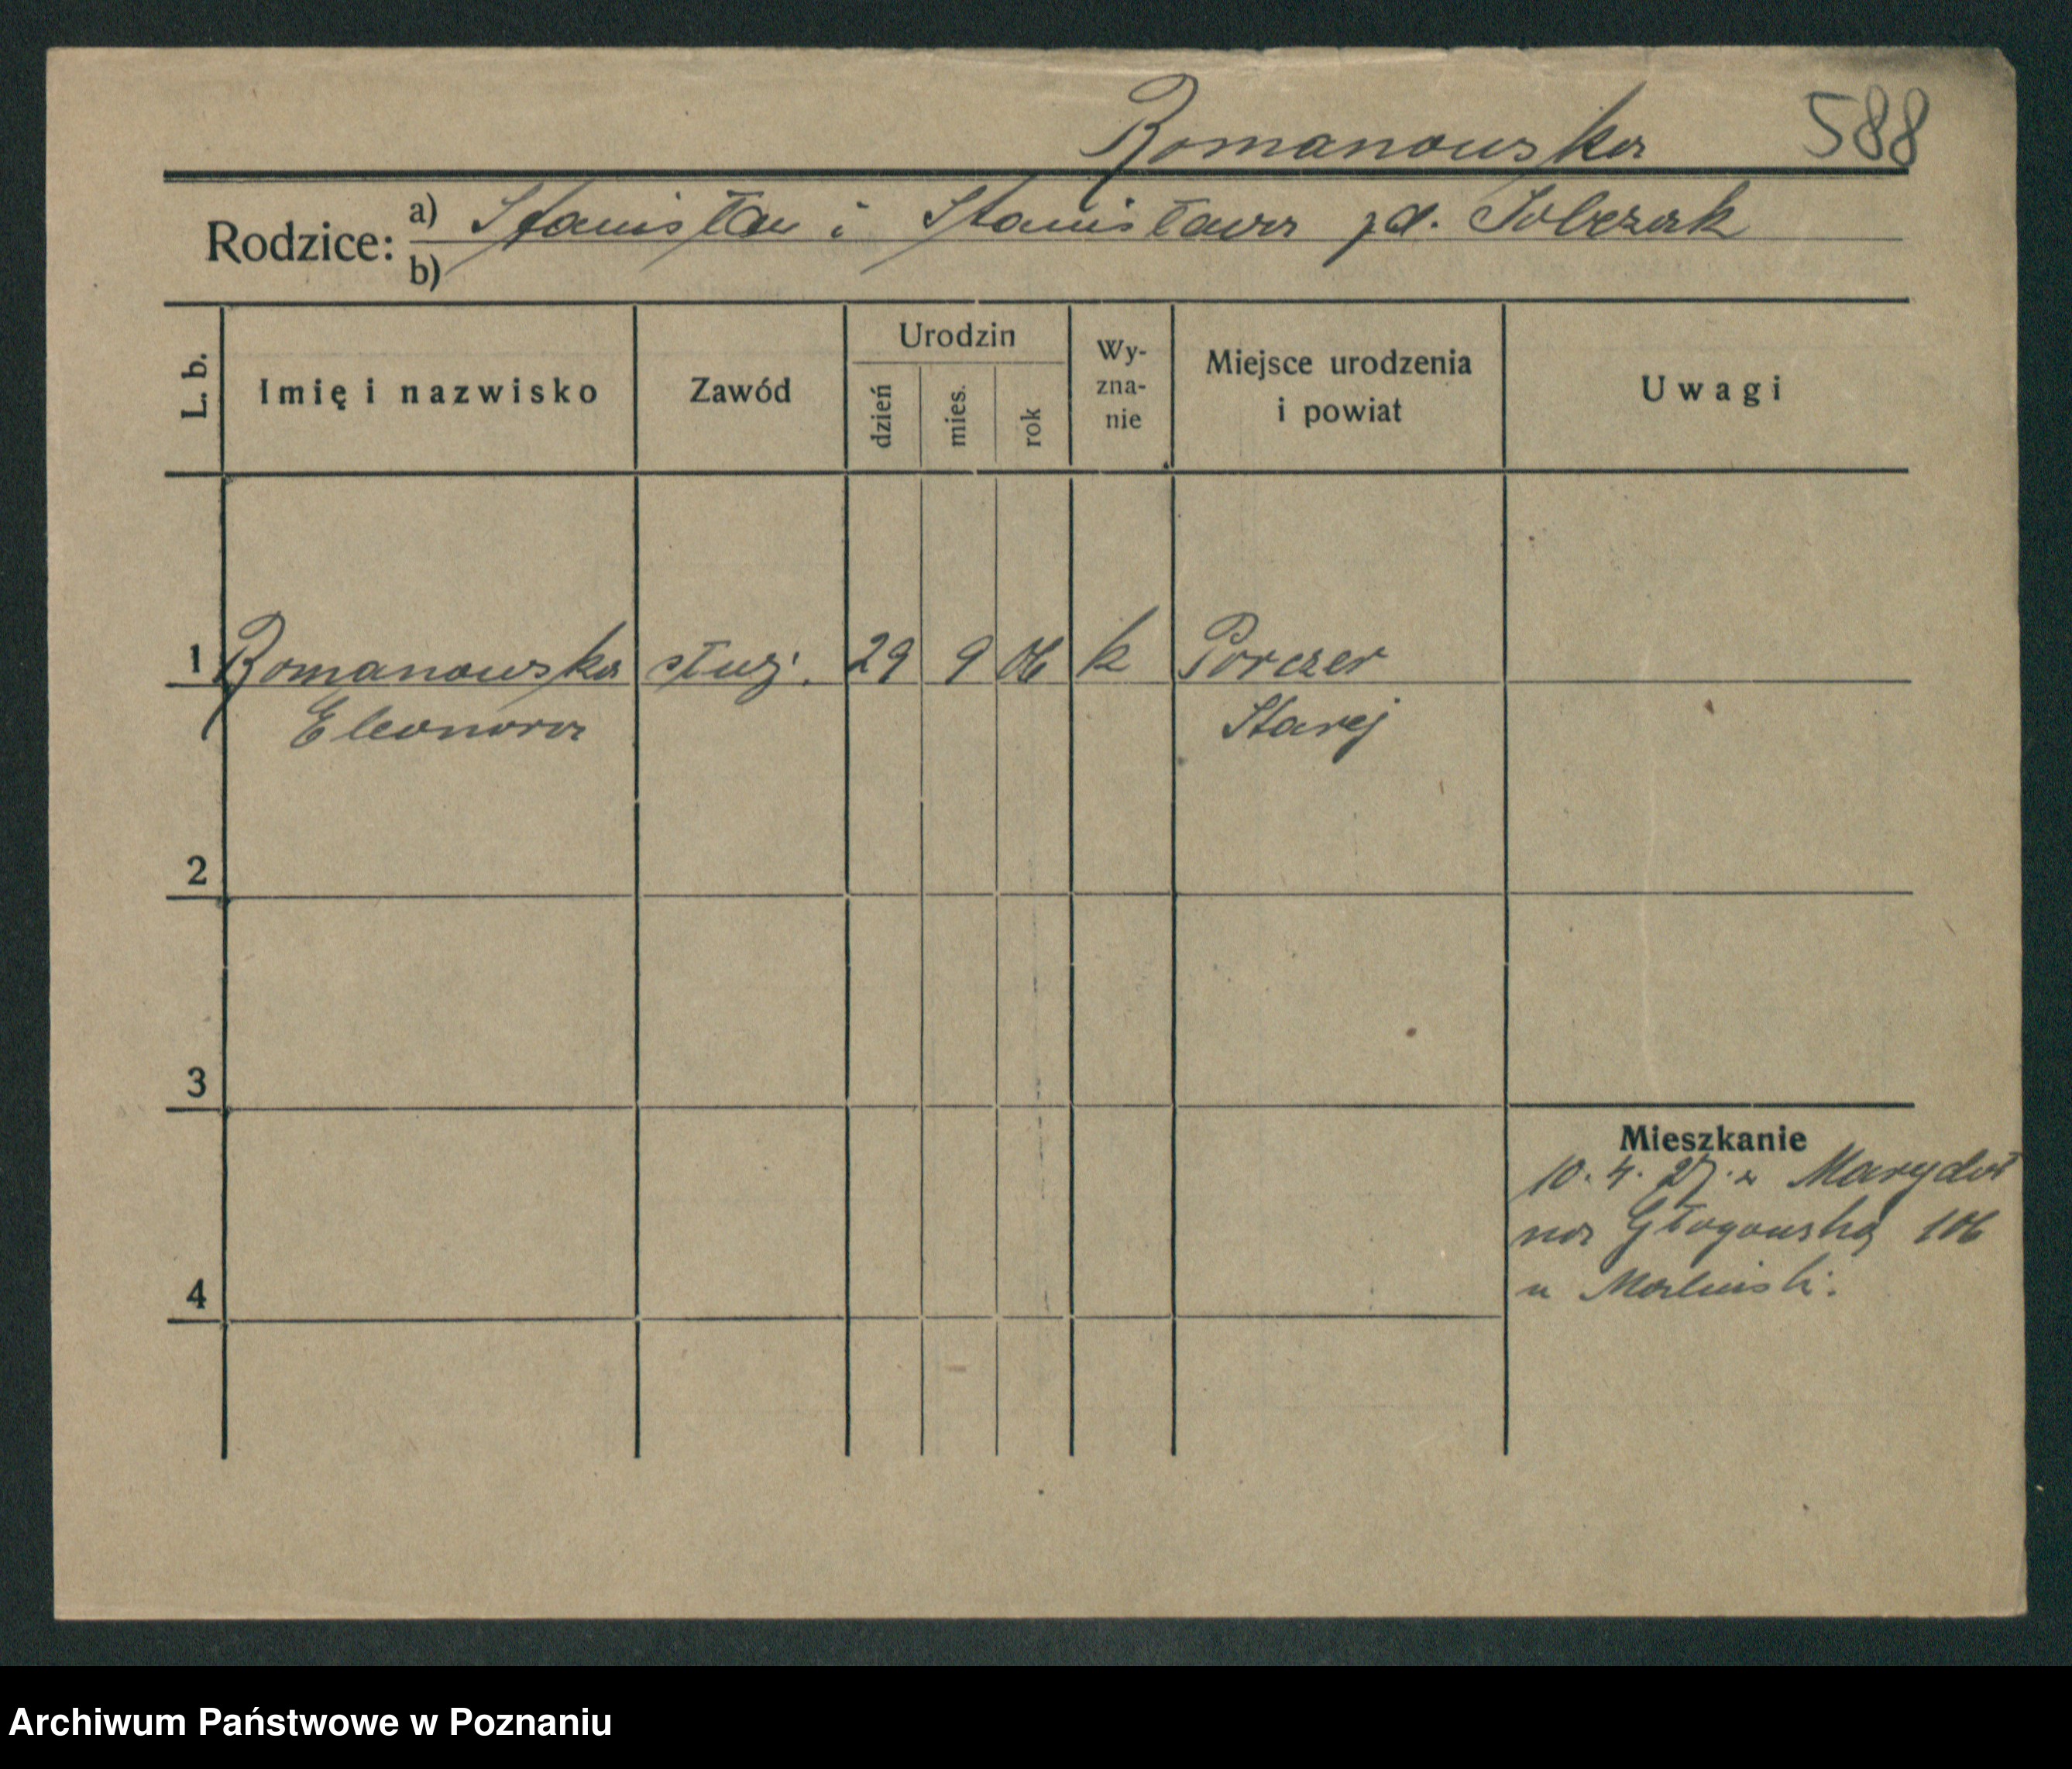 Romanowska 588
Rodzice: a) Stanisław i Stanisława zd. Sobczak
b)
L. b. Imię i nazwisko Zawód Urodzin dzień mies. rok Wy-zna-nie Miejsce urodzenia i powiat Uwagi
1 Romanowska służ. 29 9 06 k
Eleonora Starej
2
3
Mieszkanie
10. 4. 27. z
na Głogowską 106
4 u
Archiwum Państwowe w Poznaniu